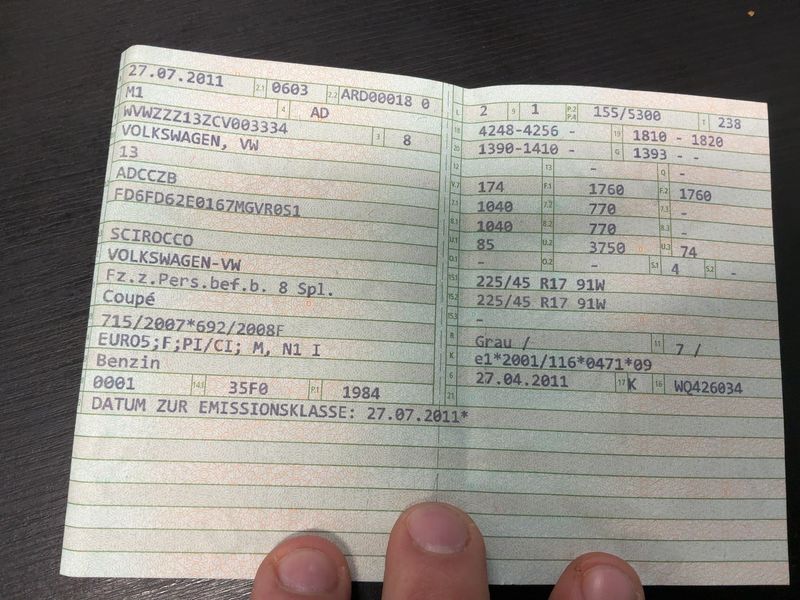 27.07.2011 2.1 0603 2.2 ARD00018 0
M1 4 AD
WVWZZZ13ZCV003334 3 8
VOLKSWAGEN, VW
13
ADCCZB
FD6FD62E0167MGVR0S1
SCIROCCO
VOLKSWAGEN-VW
Fz.z.Pers.bef.b. 8 Spl.
Coupé
715/2007*692/2008F
EURO5;F;PI/CI; M, N1 I
Benzin
0001 14.1 35F0 P.1 1984
DATUM ZUR EMISSIONSKLASSE: 27.07.2011*
L 2 9 1 P.2 P.4 155/5300 T 238
18 4248-4256 - 19 1810 - 1820
20 1390-1410 - G 1393 - -
12 - 13 - Q -
V.7 174 F.1 1760 F.2 1760
7.1 1040 7.2 770 7.3 -
8.1 1040 8.2 770 8.3 -
U.1 85 U.2 3750 U.3 74
O.1 - O.2 - S.1 4 S.2 -
15.1 225/45 R17 91W
15.2 225/45 R17 91W
15.3 -
R Grau / 11 7 /
K e1*2001/116*0471*09
6 27.04.2011 17 K 16 WQ426034
21